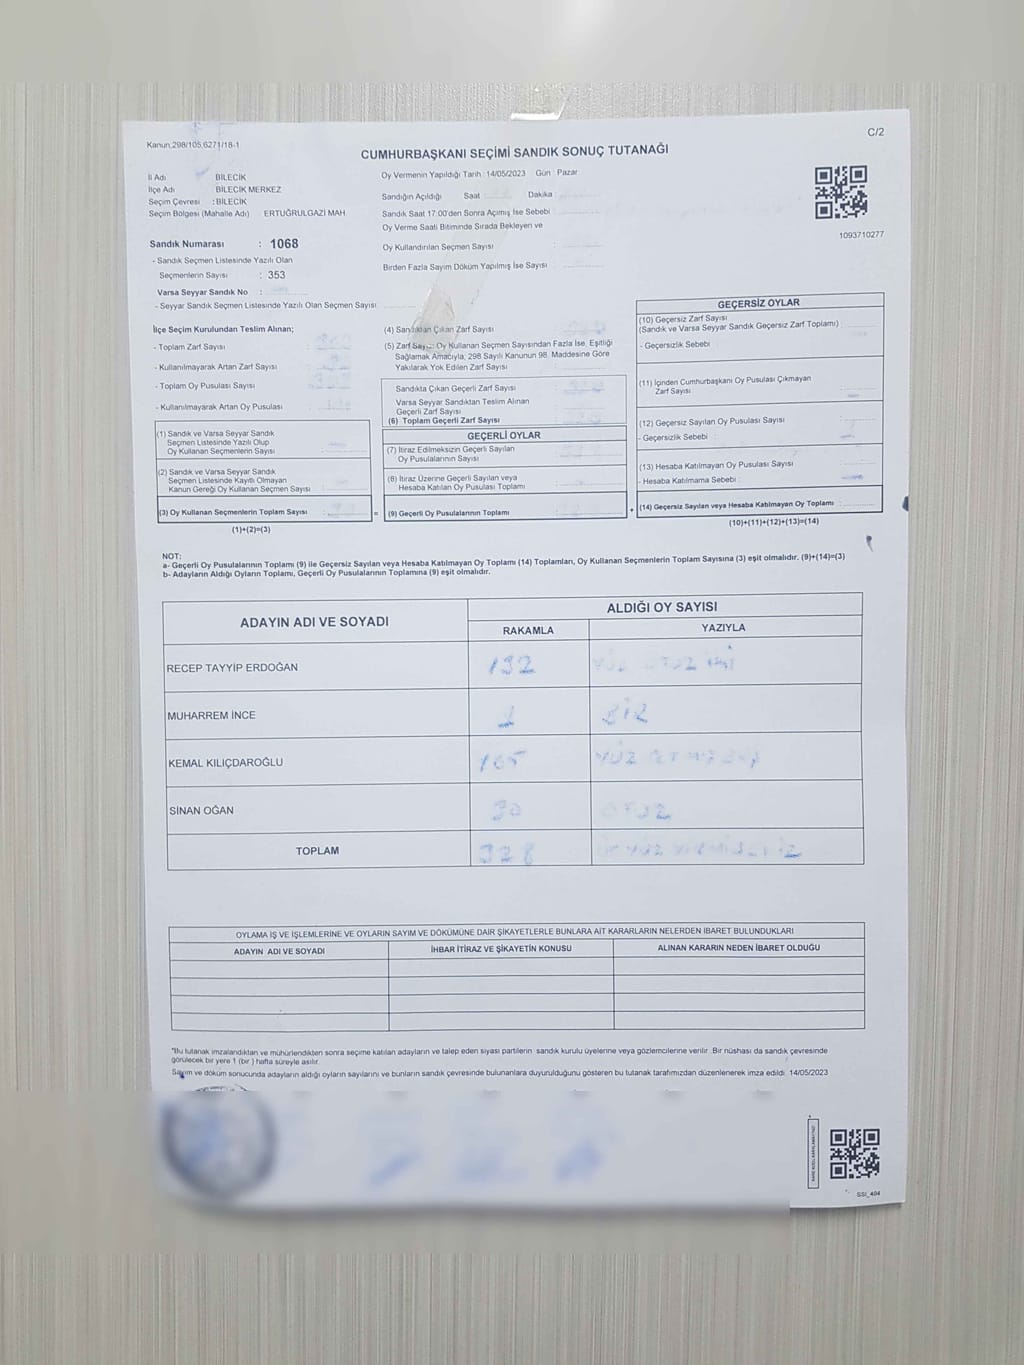 Kanun.298/105,6271/18-1
C/2
CUMHURBAŞKANI SEÇİMİ SANDIK SONUÇ TUTANAĞI
İl Adı BİLECİK
İlçe Adı BİLECİK MERKEZ
Seçim Çevresi : BİLECİK
Seçim Bölgesi (Mahalle Adı) ERTUĞRULGAZİ MAH.
Sandık Numarası : 1068
- Sandık Seçmen Listesinde Yazılı Olan
Seçmenlerin Sayısı : 353
Varsa Seyyar Sandık No :
- Seyyar Sandık Seçmen Listesinde Yazılı Olan Seçmen Sayısı
Oy Vermenin Yapıldığı Tarih : 14/05/2023 Gün : Pazar
Sandığın Açıldığı Saat Dakika
Sandık Saat 17:00'den Sonra Açımış İse Sebebi
Oy Verme Saati Bitiminde Sırada Bekleyen ve
Oy Kullandırılan Seçmen Sayısı
Birden Fazla Sayım Döküm Yapılmış İse Sayısı
1093710277
İlçe Seçim Kurulundan Teslim Alınan;
- Toplam Zarf Sayısı
- Kullanılmayarak Artan Zarf Sayısı
- Toplam Oy Pusulası Sayısı
- Kullanılmayarak Artan Oy Pusulası
(1) Sandık ve Varsa Seyyar Sandık
Seçmen Listesinde Yazılı Olup
Oy Kullanan Seçmen Sayısı
(2) Sandık ve Varsa Seyyar Sandık
Seçmen Listesinde Kayıtlı Olmayan
Kanun Gereği Oy Kullanan Seçmen Sayısı
(3) Oy Kullanan Seçmenlerin Toplam Sayısı
(1)+(2)=(3)
(4) Sandıktan Çıkan Zarf Sayısı
(5) Zarf Sayısı Oy Kullanan Seçmen Sayısından Fazla İse, Eşitliği
Sağlamak Amacıyla; 298 Sayılı Kanunun 98. Maddesine Göre
Yakılarak Yok Edilen Zarf Sayısı
Sandıkta Çıkan Geçerli Zarf Sayısı
Varsa Seyyar Sandıktan Teslim Alınan
Geçerli Zarf Sayısı
(6) Toplam Geçerli Zarf Sayısı
GEÇERLİ OYLAR
(7) İtiraz Edilmeksizin Geçerli Sayılan
Oy Pusulalarının Sayısı
(8) İtiraz Üzerine Geçerli Sayılan veya
Hesaba Katılan Oy Pusulası Toplamı
= (9) Geçerli Oy Pusulalarının Toplamı
GEÇERSİZ OYLAR
(10) Geçersiz Zarf Sayısı
(Sandık ve Varsa Seyyar Sandık Geçersiz Zarf Toplamı)
- Geçersizlik Sebebi
(11) İçinden Cumhurbaşkanı Oy Pusulası Çıkmayan
Zarf Sayısı
(12) Geçersiz Sayılan Oy Pusulası Sayısı
- Geçersizlik Sebebi
(13) Hesaba Katılmayan Oy Pusulası Sayısı
- Hesaba Katılmama Sebebi
+ (14) Geçersiz Sayılan veya Hesaba Katılmayan Oy Toplamı
(10)+(11)+(12)+(13)=(14)
NOT:
a- Geçerli Oy Pusulalarının Toplamı (9) ile Geçersiz Sayılan veya Hesaba Katılmayan Oy Toplamı (14) Toplamları, Oy Kullanan Seçmenlerin Toplam Sayısına (3) eşit olmalıdır. (9)+(14)=(3)
b- Adayların Aldığı Oyların Toplamı, Geçerli Oy Pusulalarının Toplamına (9) eşit olmalıdır.
ADAYIN ADI VE SOYADI ALDIĞI OY SAYISI
RAKAMLA YAZIYLA
RECEP TAYYİP ERDOĞAN 132 YÜZ OTUZ İKİ
MUHARREM İNCE 1 BİR
KEMAL KILIÇDAROĞLU 165 YÜZ
SİNAN OĞAN 30 OTUZ
TOPLAM 328
OYLAMA İŞ VE İŞLEMLERİNE VE OYLARIN SAYIM VE DÖKÜMÜNE DAİR ŞİKAYETLERLE BUNLARA AİT KARARLARIN NELERDEN İBARET BULUNDUKLARI
ADAYIN ADI VE SOYADI İHBAR İTİRAZ VE ŞİKAYETİN KONUSU ALINAN KARARIN NEDEN İBARET OLDUĞU
"Bu tutanak imzalandıktan ve mühürlendikten sonra seçime katılan adayların ve talep eden siyasi partilerin sandık kurulu üyelerine veya gözlemcilerine verilir. Bir nüshası da sandık çevresinde
görülecek bir yere 1 (bir ) hafta süreyle asılır.
Sayım ve döküm sonucunda adayların aldığı oyların sayılarını ve bunların sandık çevresinde bulunanlara duyurulduğunu gösteren bu tutanak tarafımızdan düzenlenerek imza edildi. 14/05/2023
SSİ_404